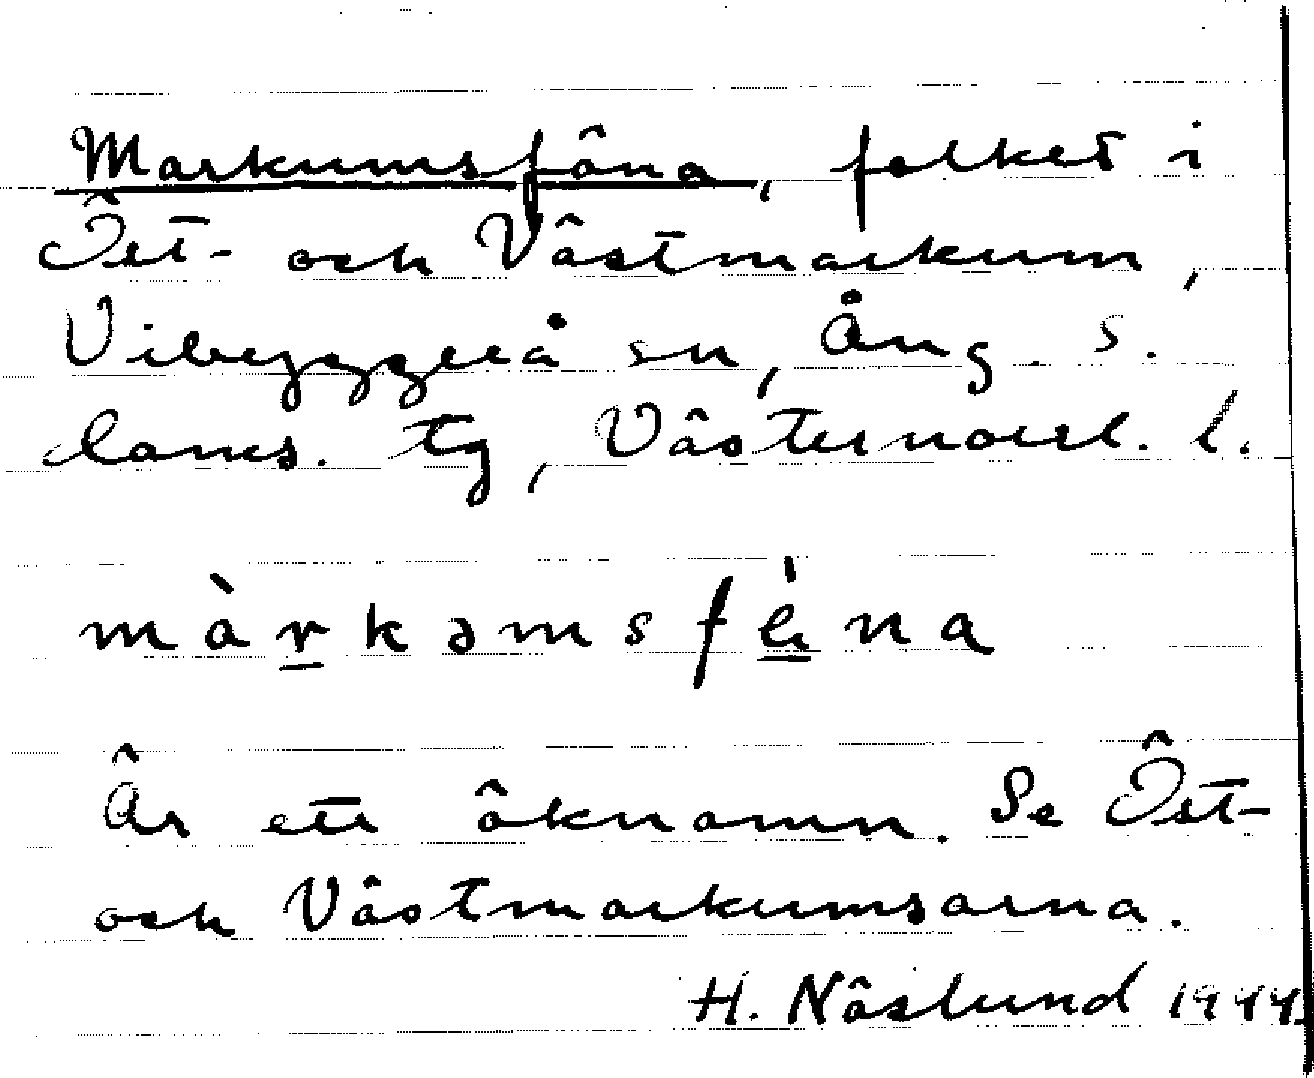 Markumsfäna, folket i
Öst- och Västmarkum,
Vibyggerå sn, Ång. s.
lands. tg, Västernorrl. l.
màrkəmsfėna
Är ett öknamn. Se Öst-
och Västmarkumsarna.
H. Näslund 1944